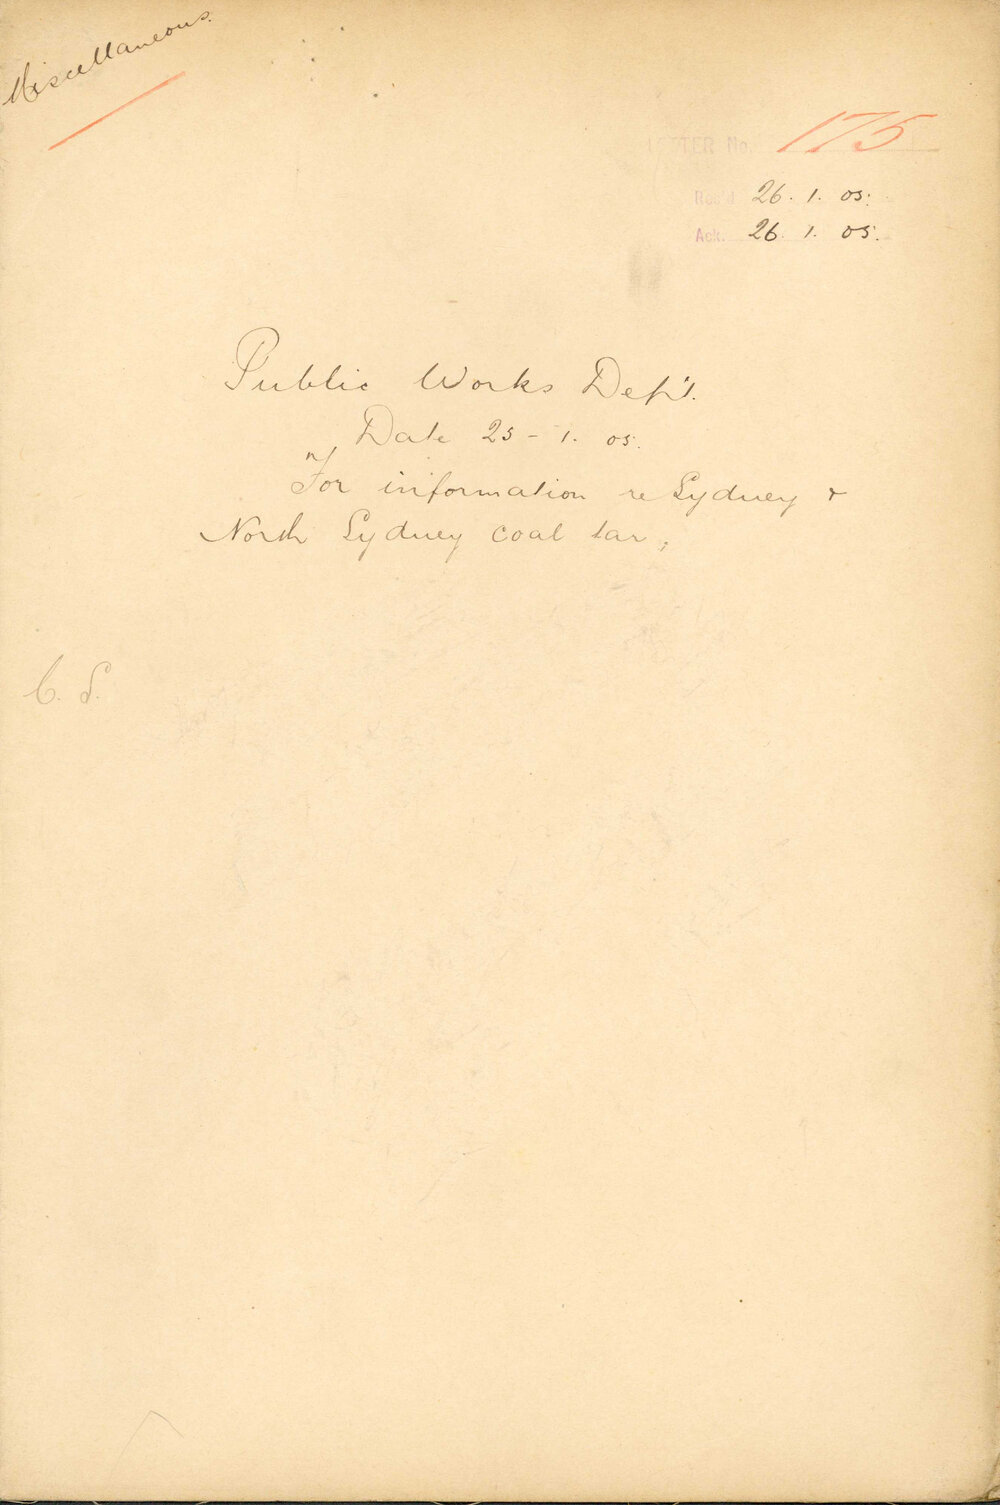 Miscellaneous.
LETTER No. 175
Rec'd 26. 1. 05.
Ack. 26. 1. 05.
Public Works Dep't.
Date 25 - 1. 05.
For information re Sydney &
North Sydney coal tar,
C. S.